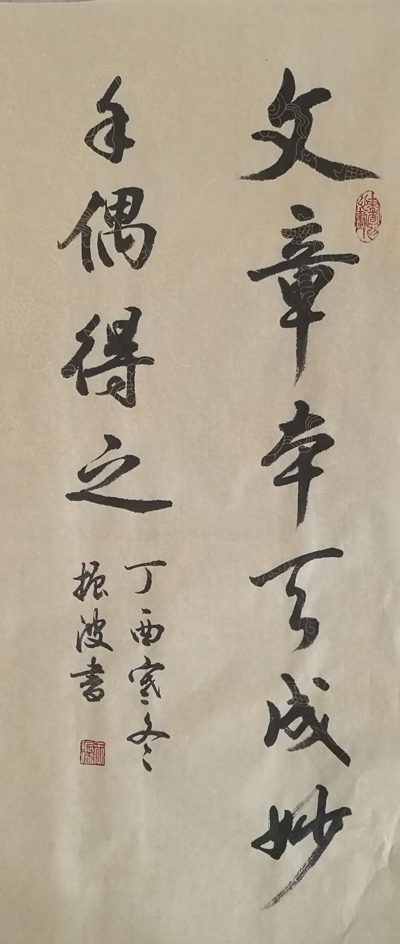 文章本天成妙
手偶得之
丁酉寒冬
振波書